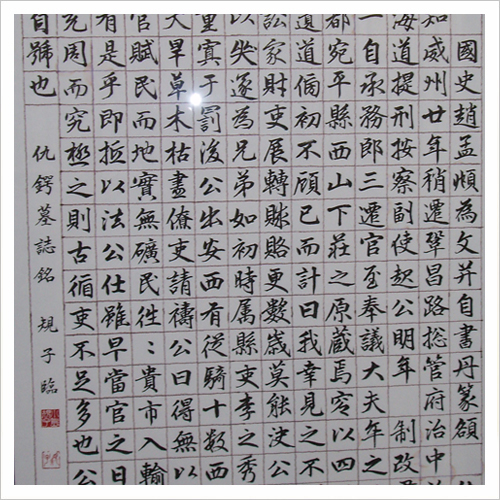 國史趙孟頫為文并自書丹篆額
知威州廿年稍遷鞏昌路総管府治中
海道提刑按察副使起公明年 制改
一自承務郎三遷官至奉議大夫年之
都宛平縣西山下莊之原藏焉容以四
道偭初不顧已而計曰我幸見之不
訟家財吏展轉賕賂更數歲莫能決公
以失遂為兄弟如初時属縣吏李之秀
重寘于罰後公出安西有從騎十數西
大旱草木枯盡僚吏請禱公曰得無以
官賦民而地實無礦民徃〻貴市入輸
有是乎即抵以法公仕雖早當官之日
充周而究極之則古循吏不足多也公
自號也
仇鍔墓誌銘 規子臨